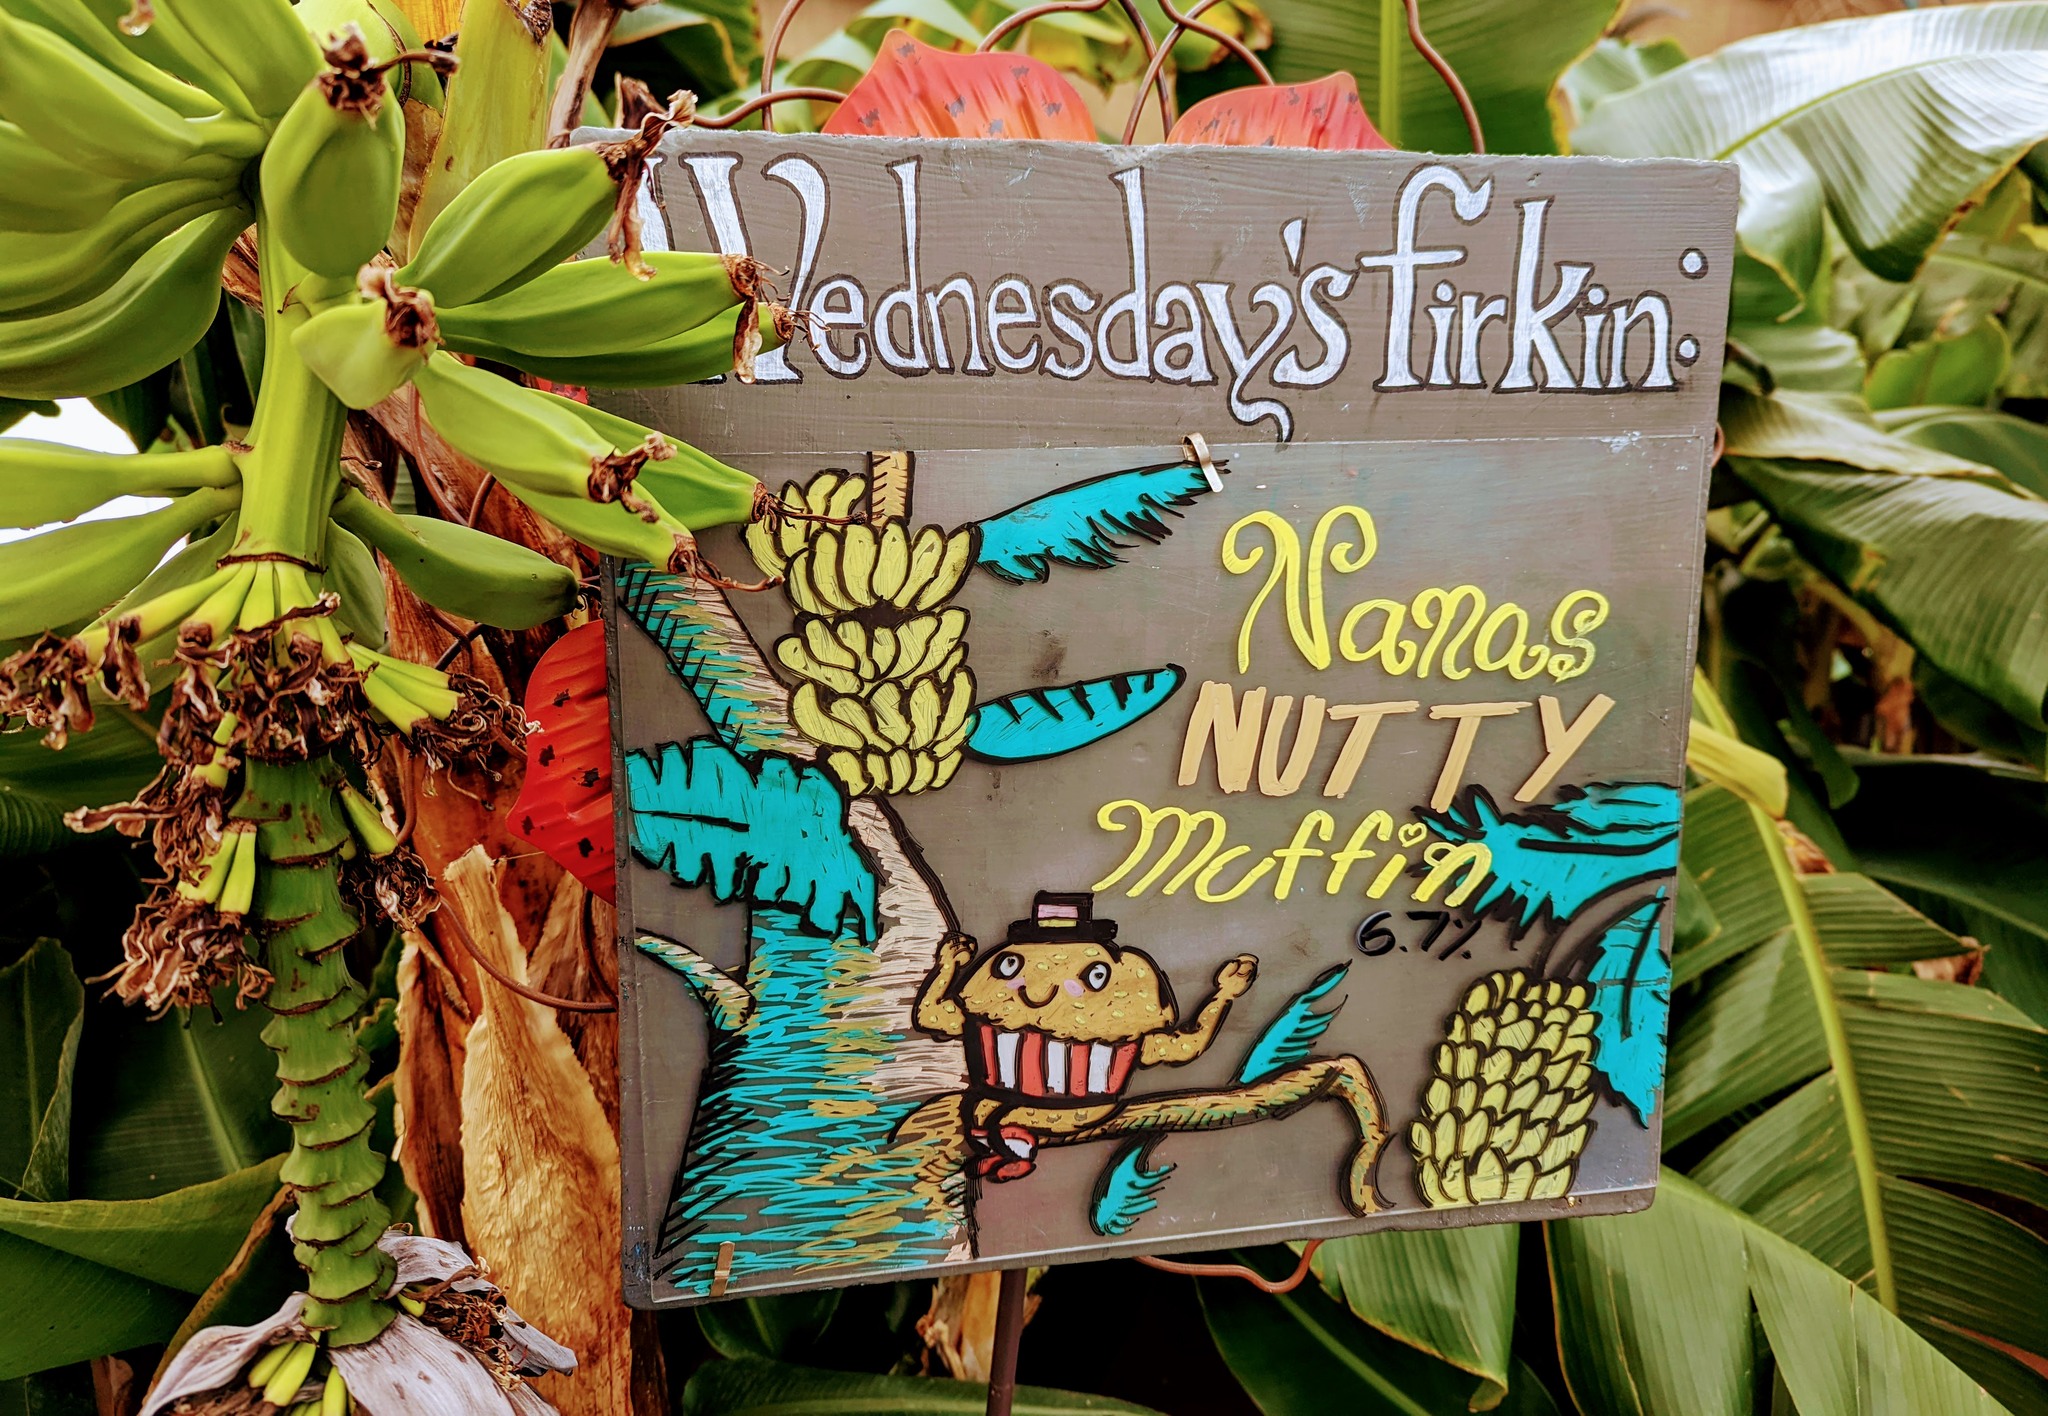 Wednesday's firkin:
Nanas
NUTTY
Muffin
6.7%